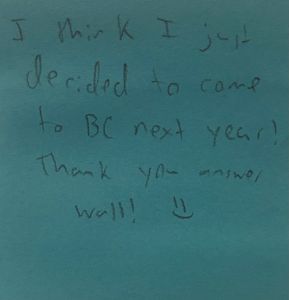 I think I just
decided to come
to BC next year!
Thank you answer
wall! :)